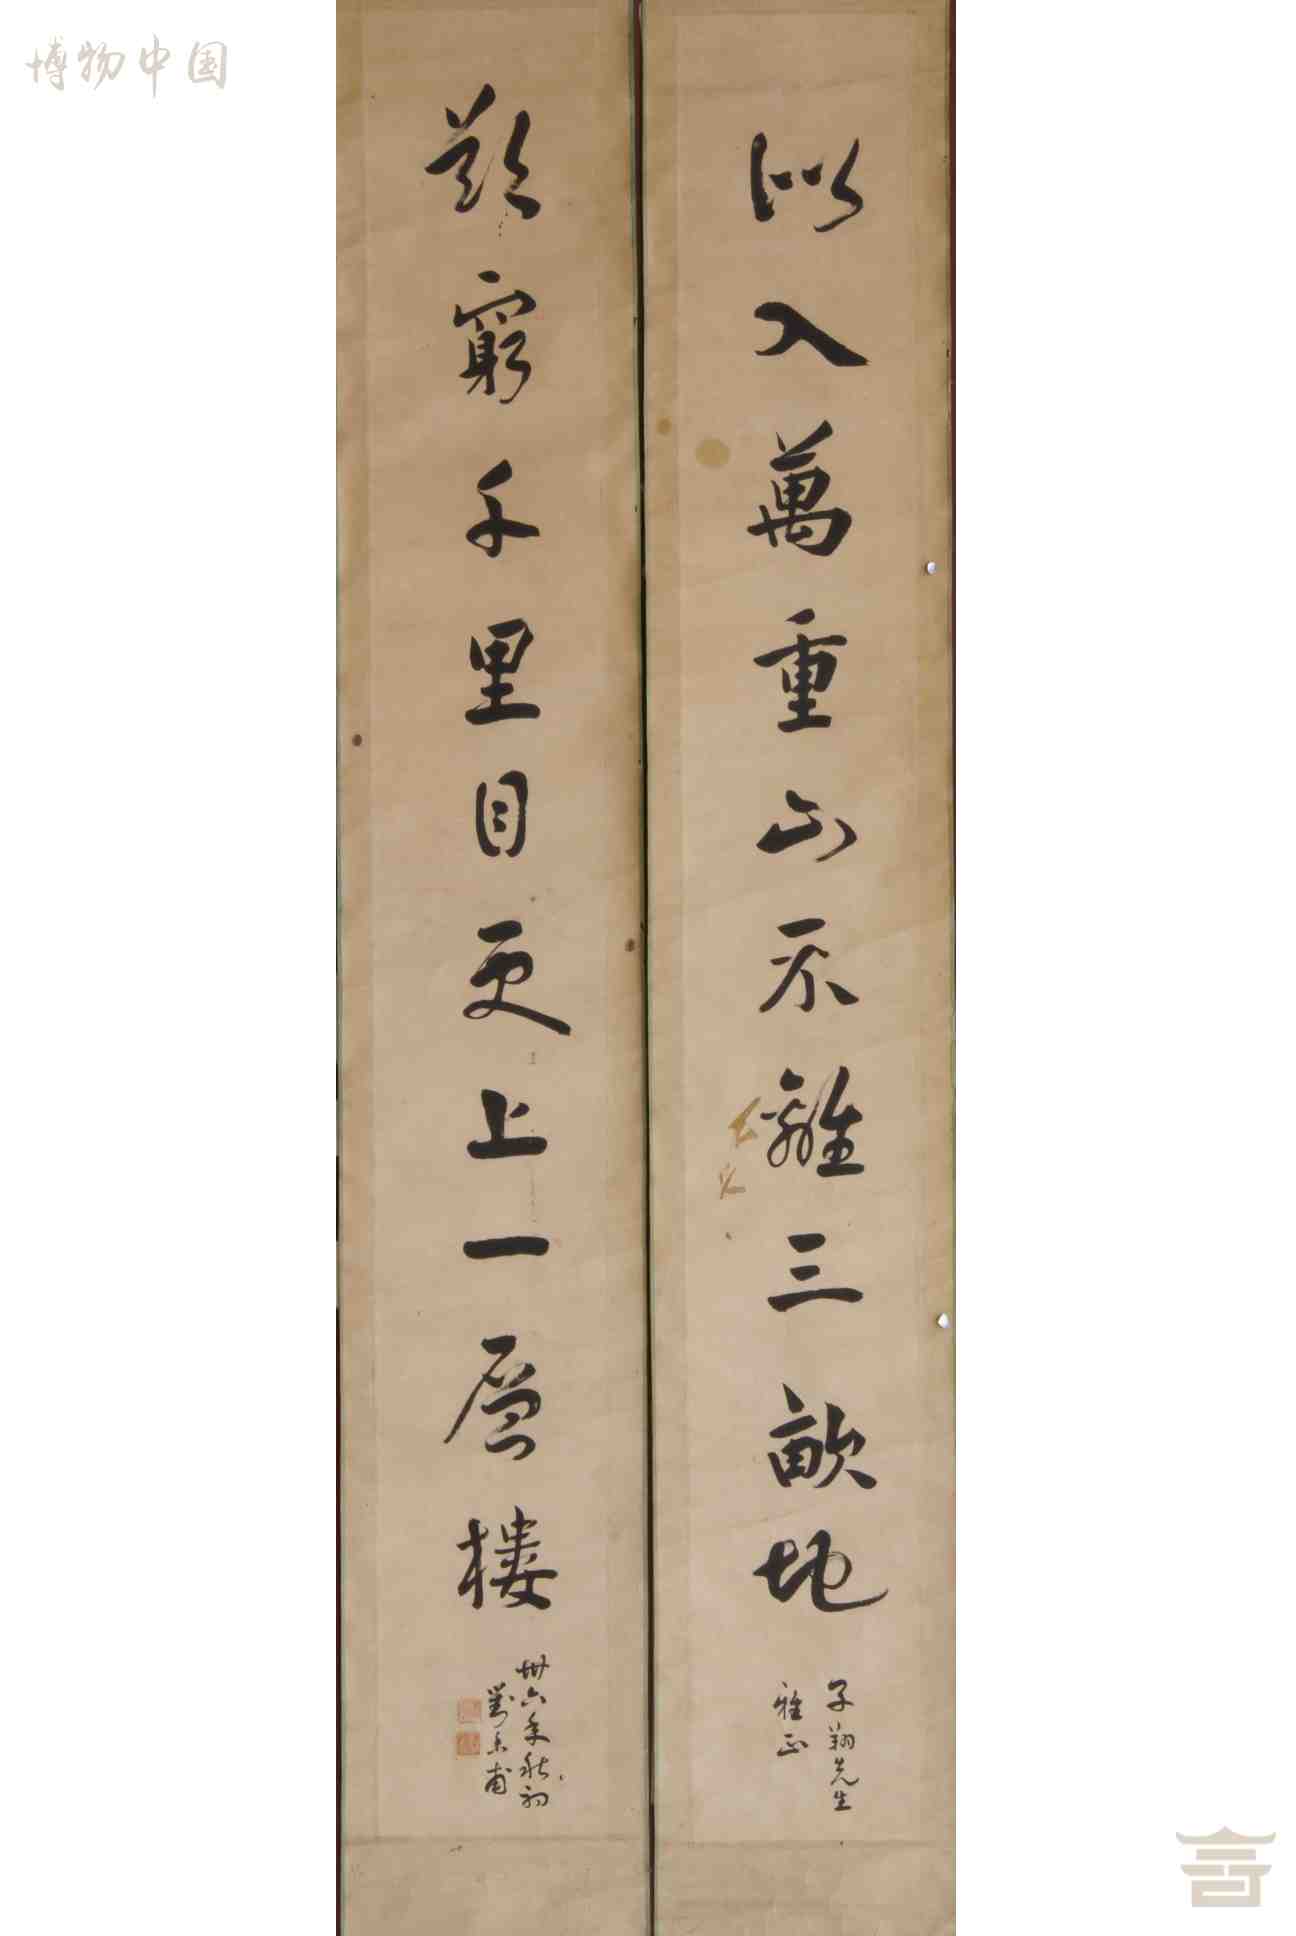 似入萬重山不離三畝地
子翔先生
雅正
欲窮千里目更上一層樓
卅六年秋初
劉杰甫
博物中国